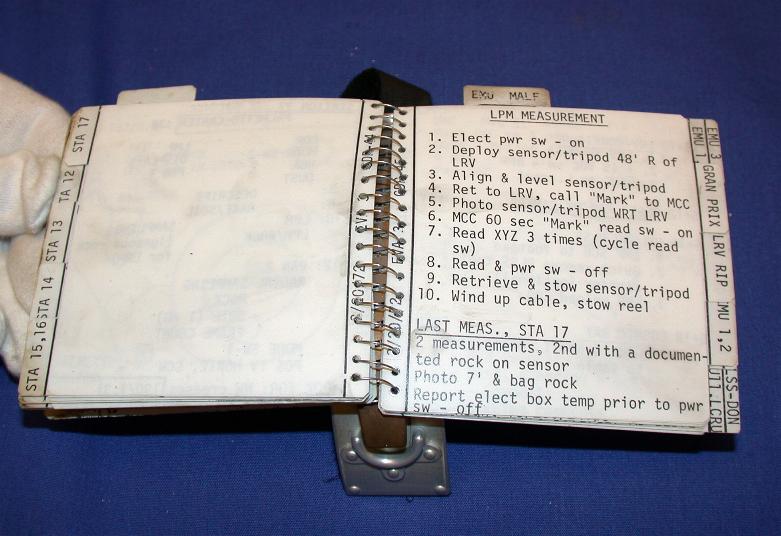 EMU MALF
STA 17
STA 13
STA 14
STA 15,16
LPM MEASUREMENT
1. Elect pwr sw - on
2. Deploy sensor/tripod 48' R of
LRV
3. Align & level sensor/tripod
4. Ret to LRV, call "Mark" to MCC
5. Photo sensor/tripod WRT LRV
6. MCC 60 sec "Mark" read sw - on
7. Read XYZ 3 times (cycle read
sw)
8. Read & pwr sw - off
9. Retrieve & stow sensor/tripod
10. Wind up cable, stow reel
LAST MEAS., STA 17
2 measurements, 2nd with a documen-
ted rock on sensor
Photo 7' & bag rock
Report elect box temp prior to pwr
sw - off
EMU 3
EMU 1
GRAN PRIX
LRV RIP
MU 1,2